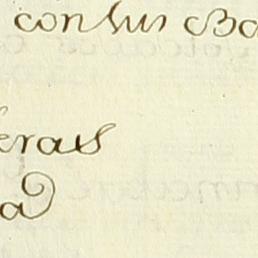 con sus Ba
eras
a